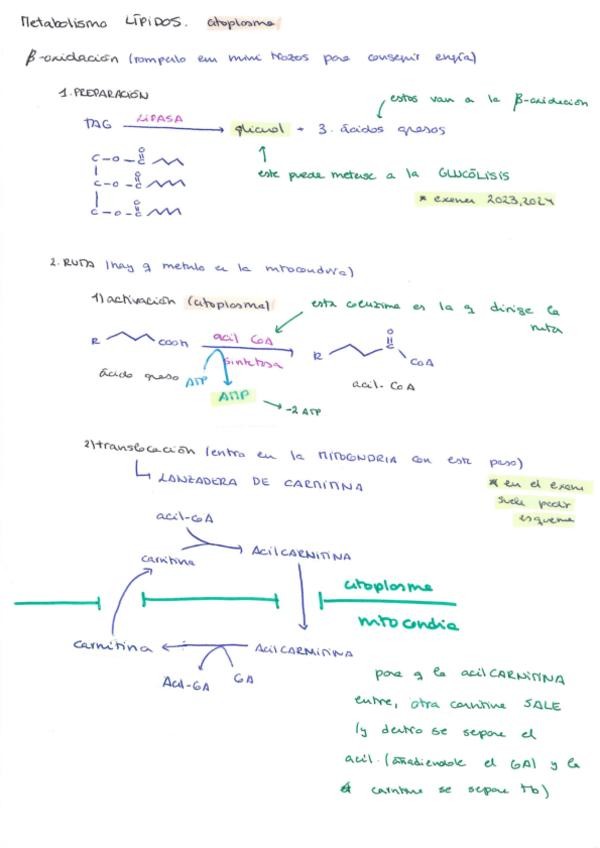 Metabolismo LÍPIDOS. citoplasma
β-oxidación (romperlo em mini trozos para conseguir engía)
1. PREPARACIÓN
estos van a la β-oxidación
TAG LIPASA glicerol + 3. ácidos grasos
C-O-C
O
C-O-C
O
C-O-C
O
este puede meterse a la GLUCÓLISIS
* examen 2023, 2024
2. RUTA (hay q meterlo en la mitocondria)
1) activación (citoplasma)
esta coenzima es la q dirige la ruta
R COOH acil CoA sintetasa R O CoA
ácido graso ATP
acil-CoA
AMP → -2 ATP
2) translocación (entra en la MITOCONDRIA con este paso)
LANZADERA DE CARNITINA
* en el examen
suele pedir
esquema
acil-CoA
carnitina
Acil CARNITINA
citoplasma
mitocondria
carnitina
Acil CARNITINA
Acil-CoA CoA
para q la acil CARNITINA
entre, otra carnitina SALE
(y dentro se separa el
acil. (añadiendole el CoA) y la
carnitina se separa tb)